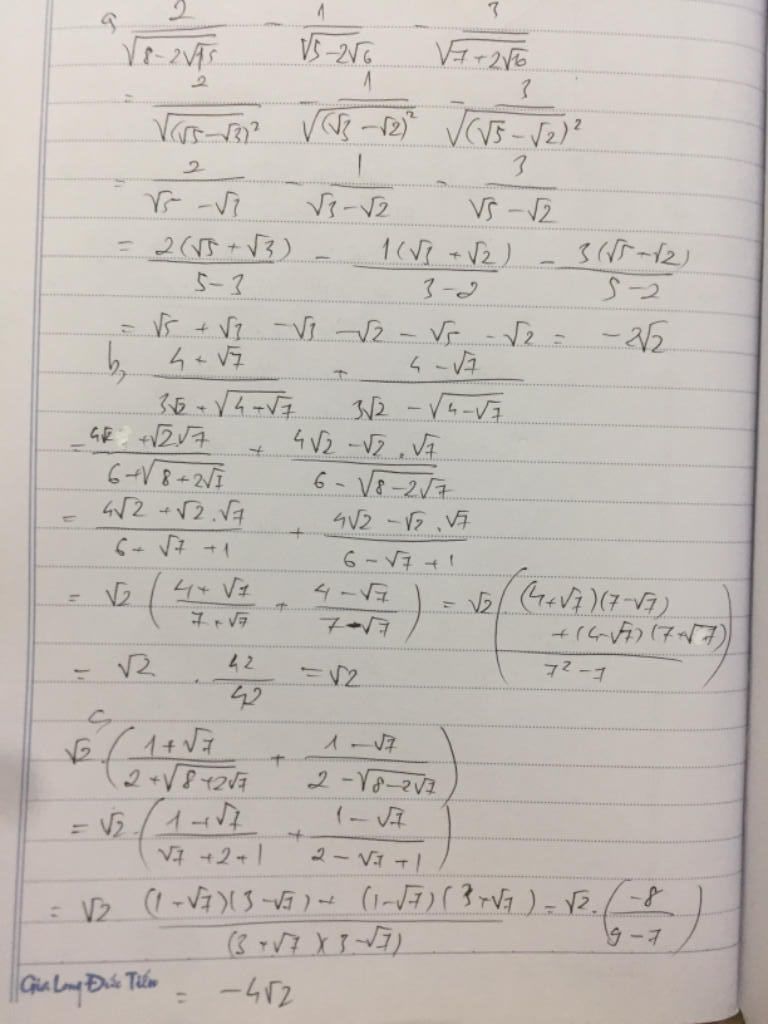 a, 2/√(8-2√15) - 1/√(5-2√6) - 3/√(7+2√10)
= 2/√((√5-√3)²) - 1/√((√3-√2)²) - 3/√((√5-√2)²)
= 2/(√5-√3) - 1/(√3-√2) - 3/(√5-√2)
= 2(√5+√3)/(5-3) - 1(√3+√2)/(3-2) - 3(√5+√2)/(5-2)
= √5 + √3 - √3 - √2 - √5 - √2 = -2√2
b, (4+√7)/(3√2+√(4+√7)) + (4-√7)/(3√2-√(4-√7))
= (4√2+√2.√7)/(6+√(8+2√7)) + (4√2-√2.√7)/(6-√(8-2√7))
= (4√2+√2.√7)/(6+√7+1) + (4√2-√2.√7)/(6-√7+1)
= √2((4+√7)/(7+√7) + (4-√7)/(7-√7)) = √2(((4+√7)(7-√7)+(4-√7)(7+√7))/(7²-7))
= √2 . 42/42 = √2
c,
√2.((1+√7)/(2+√(8+2√7)) + (1-√7)/(2-√(8-2√7)))
= √2.((1+√7)/(√7+2+1) + (1-√7)/(2-√7+1))
= √2 ((1+√7)(3-√7)+(1-√7)(3+√7))/((3+√7)(3-√7)) = √2.(-8/(9-7))
= -4√2
Gia Long Đức Tiến